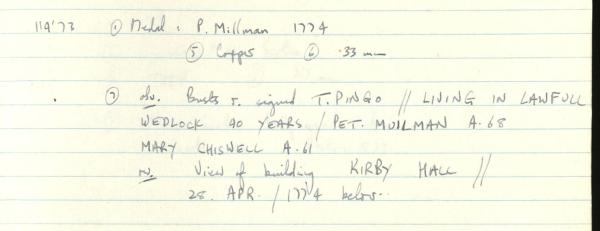 114'73 ① Medal : P. Millman 1774
⑤ Copper ⑥ .33 mm
⑦ obv. Busts r. signed T. PINGO // LIVING IN LAWFULL
WEDLOCK 40 YEARS / PET. MUILMAN A. 68
MARY CHISWELL A. 61
rv. View of building KIRBY HALL //
28. APR. / 1774 below.